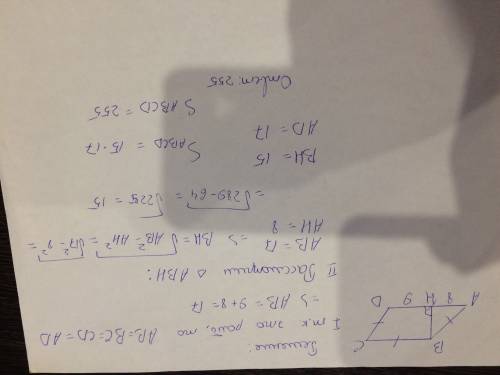 B
C
A 8 H 9 D
Решение:
I т.к это ромб, то AB=BC=CD=AD
=> AB = 9+8 = 17
II Рассмотрим △ ABH:
AB = 17
AH = 8 => BH = √AB²-AH² = √17²-8² =
= √289-64 = √225 = 15
BH = 15
AD = 17
S ABCD = 15·17
S ABCD = 255
Ответ: 255